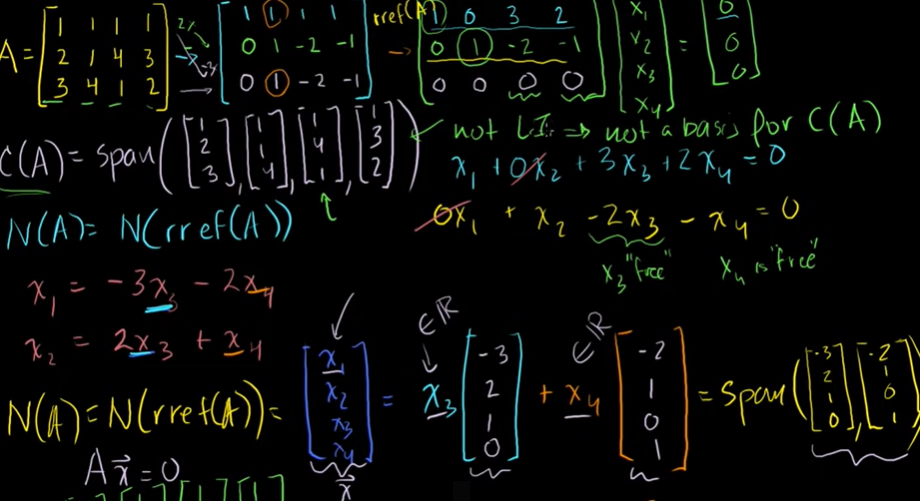 A = [1 1 1 1; 2 1 4 3; 3 4 1 2] → [1 1 1 1; 0 1 -2 -1; 0 1 -2 -1] rref(A) → [1 0 3 2; 0 1 -2 -1; 0 0 0 0] [x₁; x₂; x₃; x₄] = [0; 0; 0]
C(A) = span([1; 2; 3], [1; 1; 4], [1; 4; 1], [1; 3; 2]) not LI ⇒ not a basis for C(A)
x₁ + 0x₂ + 3x₃ + 2x₄ = 0
N(A) = N(rref(A))
0x₁ + x₂ - 2x₃ - x₄ = 0
x₃ "free" x₄ is "free"
x₁ = -3x₃ - 2x₄
x₂ = 2x₃ + x₄
∈ℝ ∈ℝ
N(A) = N(rref(A)) = [x₁; x₂; x₃; x₄] = x₃ [-3; 2; 1; 0] + x₄ [-2; 1; 0; 1] = span([-3; 2; 1; 0], [-2; 1; 0; 1])
Ax⃗ = 0 x⃗